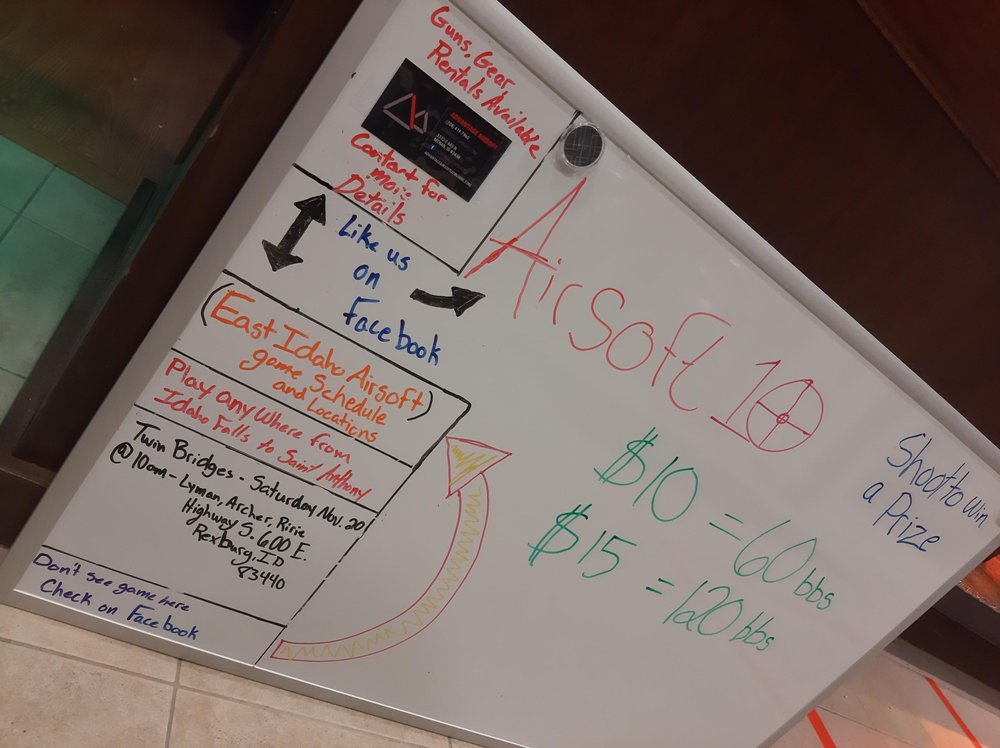 Guns, Gear,
Rentals Available
ADVANTAGE AIRSOFT
Contant for
more
Details
Like us
on
Facebook
(East Idaho Airsoft)
game Schedule
and Locations
Play anywhere from
Idaho Falls to Saint Anthony
Twin Bridges - Saturday Nov. 20
@10am - Lyman, Archer, Ririe
Highway S. 600 E.
Rexburg, ID
83440
Don't see game here
Check on Facebook
Airsoft 10
$10 = 60 bbs
$15 = 120 bbs
Shoot to win
a Prize